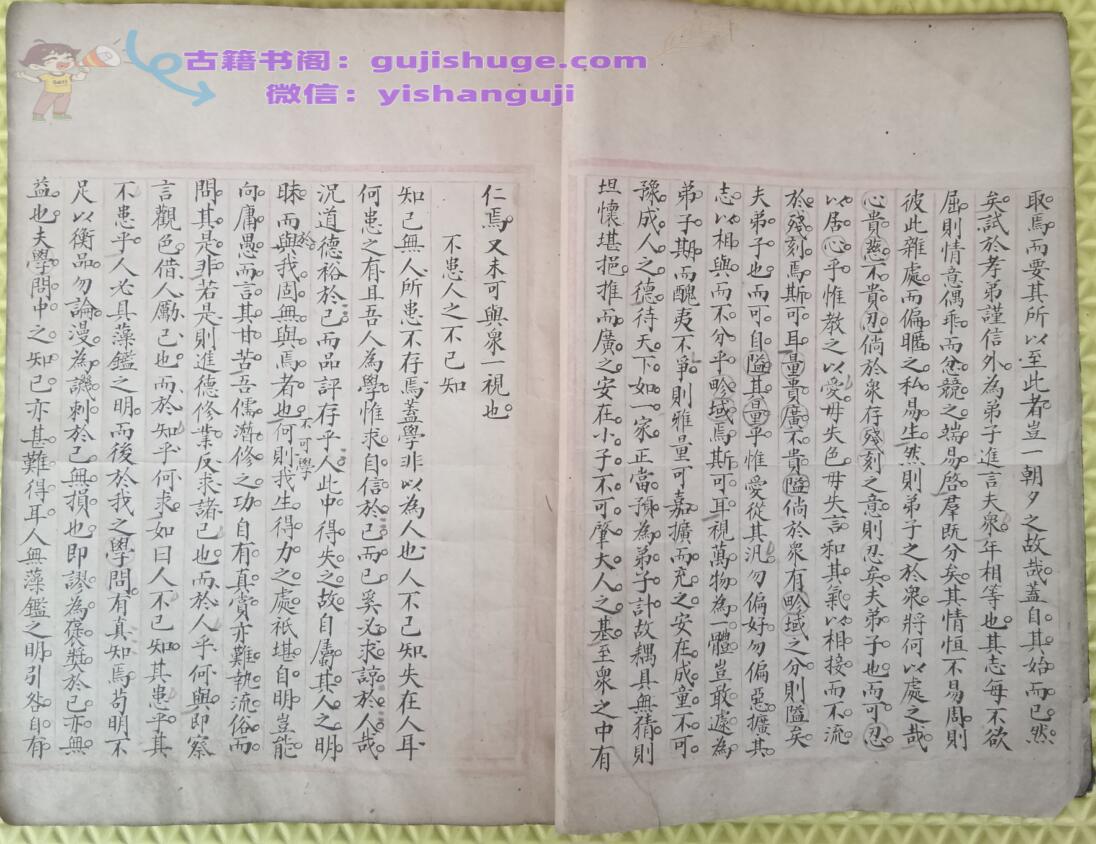 古籍书阁：gujishuge.com
微信：yishanguji
取焉而要其所以至此者豈一朝夕之故哉蓋自其始而已然
矣試於孝弟謹信外為弟子進言夫衆年相等也其志每不欲
屈則情意偶乖而忿競之端易啓羣既分矣其情恒不易周則
彼此雜處而偏暱之私易生然則弟子之於衆將何以處之哉
心貴慈不貴忍倘於衆存殘刻之意則忍矣夫弟子也而可忍
以居心乎惟教之以愛毋失色毋失言和其氣以相接而不流
於殘刻焉斯可耳量貴廣不貴隘倘於衆有畛域之分則隘矣
夫弟子也而可自隘其量乎惟愛從其汎勿偏好勿偏惡擴其
志以相與而不分乎畛域焉斯可耳視萬物為一體豈敢遽為
弟子期而醜夷不爭則雅量可嘉擴而充之安在成童不可
豫成人之德待天下如一家正當預為弟子計故耦具無猜則
坦懷堪挹推而廣之安在小子不可肇大人之基至衆之中有
仁焉又未可與衆一視也
不患人之不己知
知己無人所患不存焉蓋學非以為人也人不己知失在人耳
何患之有且吾人為學惟求自信於己而已奚必求諒於人哉
況道德裕於己而品評存乎人此中得失之故自屬其人之明
昧而與於我固無與焉者也何則我生得力之處祇堪自明豈能
向庸愚而言其甘苦吾儒潛修之功自有真賞亦難執流俗而
不可學
問其是非若是則進德修業反求諸己也而於人乎何與即察
言觀色借人勵己也而於知乎何求如曰人不己知其患乎其
不患乎人必具藻鑑之明而後於我之學問有真知焉苟明不
足以衡品勿論漫為譏刺於己無損也即謬為褒獎於己亦無
益也夫學問中之知己亦甚難得耳人無藻鑑之明引咎自有